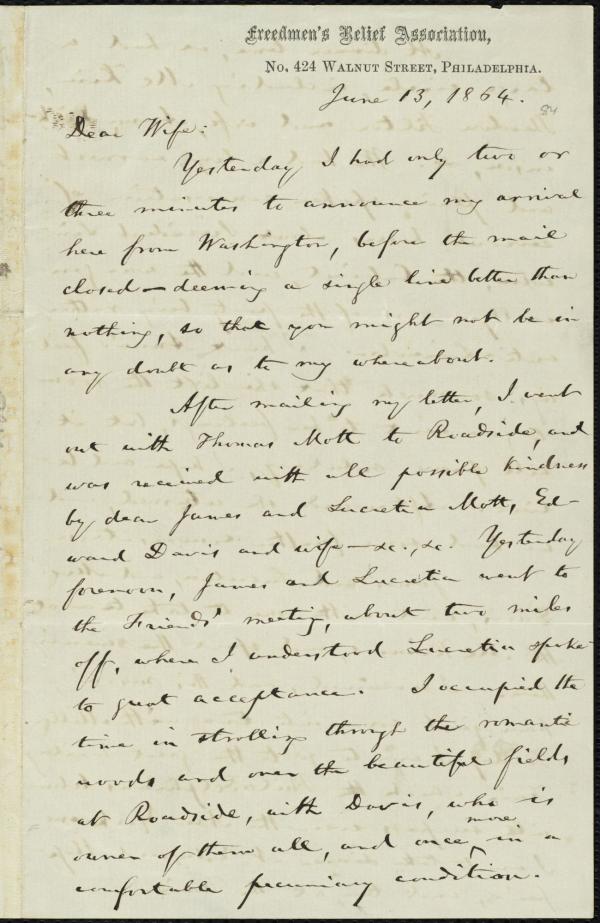 Freedmen's Relief Association,
No. 424 Walnut Street, Philadelphia.
June 13, 1864.
84
Dear Wife:
Yesterday I had only two or
three minutes to announce my arrival
here from Washington, before the mail
closed — deeming a single line better than
nothing, so that you might not be in
any doubt as to my whereabout.
After mailing my letter, I went
out with Thomas Mott to Roadside, and
was received with all possible kindness
by dear James and Lucretia Mott, Ed-
ward Davis and wife — &c., &c. Yesterday
forenoon, James and Lucretia went to
the Friends' meeting, about two miles
off, where I understood Lucretia spoke
to great acceptance. I occupied the
time in strolling through the romantic
woods and over the beautiful fields
at Roadside, with Davis, who is
owner of them all, and once more in a
comfortable pecuniary condition.